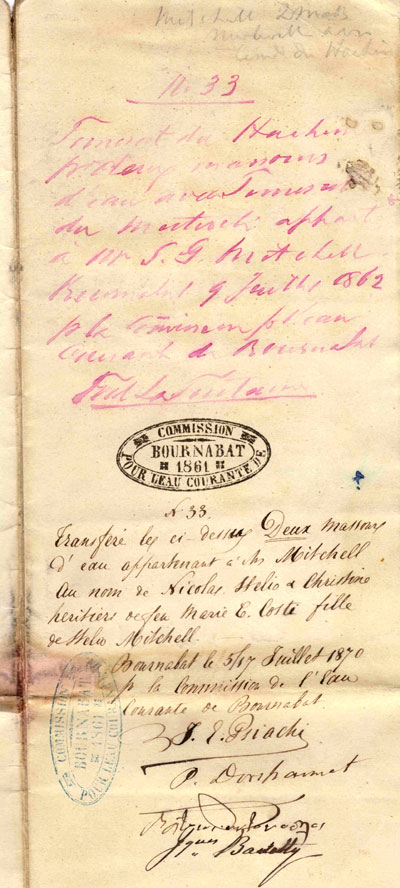 Mitchell 2 mass
No 33
Temesut du Hachin
pr Deux massours
d'eau avec Temesut
du appart
à Mr S. G. Mitchell
Bournabat 9 Juillet 1862
p la Commission pr l'eau
Courante de Bournabat
Fred LaFontaine
COMMISSION
BOURNABAT
1861
POUR LEAU COURANTE DE
N. 33
Transféré les ci dessus Deux massours
d'eau appartenant à Mr Mitchell
Au nom de Nicolas, Stelio & Christine
heritiers de feu Marie E. Coste fille
de Stelio Mitchell
Bournabat le 5/17 Juillet 1870
p la Commission de l'Eau
Courante de Bournabat
COMMISSION
BOURNABAT
1861
POUR LEAU COURANTE
J. E. Psiachi
P.